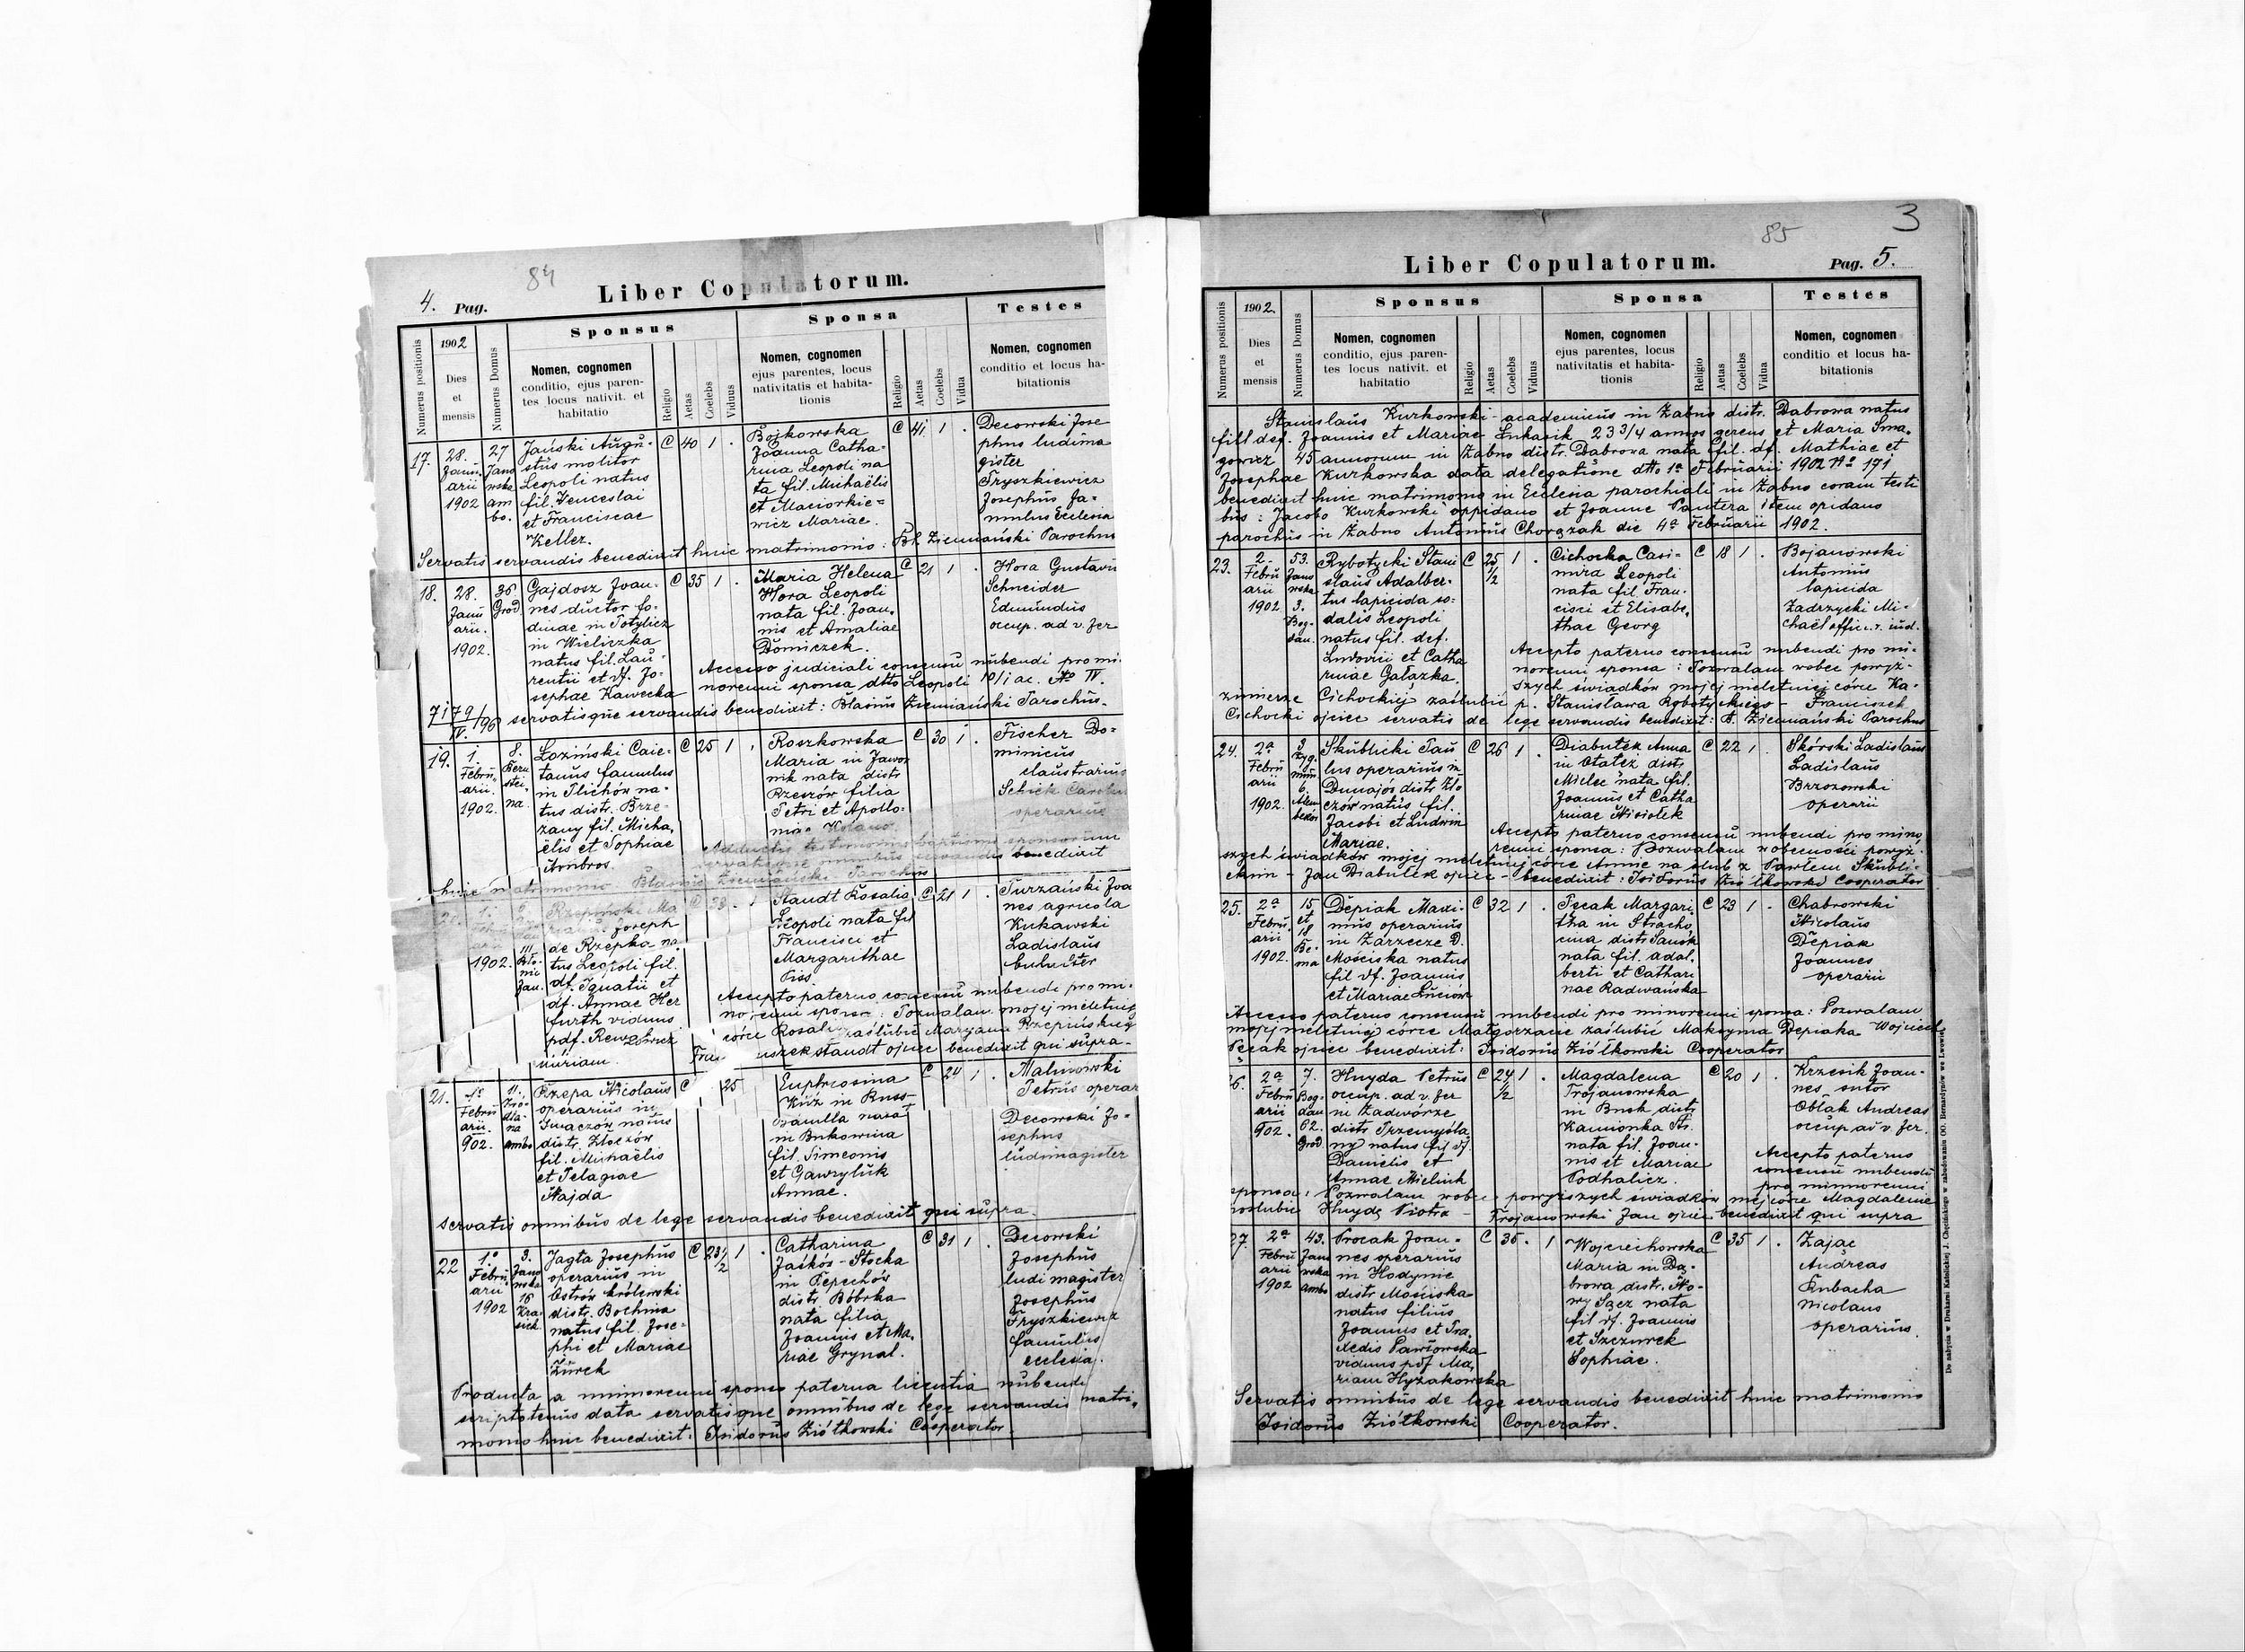 84
4. Pag.
Liber Copulatorum.
Numerus positionis
1902
Dies
et
mensis
Numerus Domus
Sponsus
Nomen, cognomen
conditio, ejus paren-
tes locus nativit. et
habitatio
Religio
Aetas
Coelebs
Viduus
Sponsa
Nomen, cognomen
ejus parentes, locus
nativitatis et habita-
tionis
Religio
Aetas
Coelebs
Vidua
Testes
Nomen, cognomen
conditio et locus ha-
bitationis
17.
28.
Janu-
arii
1902
27
Jano
wska
am
bo.
Jański Augu-
stus molitor
Leopoli natus
fil. Venceslai
et Franciscae
Keller.
C 40 1 .
Bojkowska
Joanna Catha-
rina Leopoli na
ta fil. Michaëlis
et Maciorkie=
wicz Mariae.
C 41. 1 .
Decowski Jose
phus ludima
gister
Fryszkiewicz
Josephus fa-
mulus Ecclesia
Servatis servandis benedixit huic matrimonio: Bł. Ziemiański Parochus
18.
28.
Janu
arii.
1902.
36.
Grod.
Gajdosz Joan-
nes ductor fo-
dinae in Potylicz
in Wieliczka
natus fil. Lau-
rentii et df. Jo-
sephae Kawecka
C 35 1 .
Maria Helena
Hora Leopoli
nata fil. Joan-
nis et Amaliae
Domiczek.
C 21 1 .
Hora Gustavu
Schneider
Edmundus
occup. ad v. fer
Accesso judiciali consensu nubendi pro mi-
norenni sponsa dtto Leopoli 10/1 ac. No IV.
7179/96
IV.
servatisque servandis benedixit: Blasius Ziemiański Parochus.
19.
1.
Febru-
arii.
1902.
8.
Bern
stei.
na.
Łoziński Caie-
tanus famulus
in Plichów na-
tus distr. Brze-
żany fil. Micha-
ëlis et Sophiae
Ambros.
C 25 1 .
Roszkowska
Maria in Jawor
nik nata distr
Rzeszów filia
Petri et Apollo-
niae Kolano.
C 30 1 .
Fischer Do=
minicus
claustrarius
Schick Carolus
operarius
Adductis testimoniis baptismi sponsorum
servatisque omnibus servandis benedixit
huic matrimonio Blasius Ziemiański Parochus
1902.
III
Rzepiński Ma
Joseph
de Rzepka na
tus Leopoli fil.
df. Ignatii et
df. Annae Her
furth viduus
pdf.
Mariam
Staudt Rosalis
Leopoli nata fil
Francisci et
Margarithae
Piss.
C 21 1 .
Turzański Joa
nes agricola
Kukawski
Ladislaus
Accepto paterno consensu nubendi pro mi-
norenni sponsa: Pozwalam mojej meletniej
córce Rosalii zaślubić Maryana Rzepińskieg
Staudt ojciec benedixit qui supra-
21.
1a
Febru
arii.
902.
11.
Źró-
dla-
na
ambo
Rzepa Nicolaus
operarius in
Iwaczów natus
distr. Złoczów
fil. Michaëlis
et Pelagiae
Najda
C 25
Euphrosina
Kuz in Russ-
Banilla nata
in Bukowina
fil. Simeonis
et Gawryluk
Annae.
C 24 1 .
Malinowski
Petrus operar
Decowski Jo-
sephus
ludimagister
servatis omnibus de lege servandis benedixit qui supra.
22
1.a
Febru
arii
1902
3.
Jano
wska
16
Kra-
sick
Jagta Josephus
operarius in
Ostrów królewski
distr. Bochnia
natus fil. Jose-
phi et Mariae
Żurek
C 23 1/2 1 .
Catharina
Jaskós-Stocka
in Repechów
distr Bóbrka
nata filia
Joannis et Ma-
riae Grynal.
C 31 1 .
Decowski
Josephus
ludi magister
Josephus
Fryszkiewicz
famulus
ecclesia.
Producta a minorenni sponso paterna licentia nubendi
scriptotenus data servatisque omnibus de lege servandis matri-
monio huic benedixit: Isidorus Ziółkowski Cooperator.
3
85
Liber Copulatorum.
Pag. 5.
Numerus positionis
1902.
Dies
et
mensis
Numerus Domus
Sponsus
Nomen, cognomen
conditio, ejus paren-
tes locus nativit. et
habitatio
Religio
Aetas
Coelebs
Viduus
Sponsa
Nomen, cognomen
ejus parentes, locus
nativitatis et habita-
tionis
Religio
Aetas
Coelebs
Vidua
Testes
Nomen, cognomen
conditio et locus ha-
bitationis
Stanislaus Kurkowski - academicus in Żabno distr. Dabrowa natus
fill def. Joannis et Mariae Łukasik 23 3/4 annos gerens et Maria Sma-
gowicz 45 annorum in Żabno distr. Dabrowa nata fil. df. Mathiae et
Josephae Kurkowska data delegatione dtto 1a Februarii 1902 No 171
benedixit huic matrimonio in Ecclesia parochiali in Żabno coram testi
bus: Jacobo Kurkowski oppidano et Joanne Pantera item opidano
parochus in Żabno Antonius Chorązak die 4a Februarii 1902.
23.
2.
Febru
arii
1902
53.
Jano
wska
3.
Bog-
dan.
Rybotycki Stani
slaus Adalber-
tus lapicida so-
dalis Leopoli
natus fil. def.
Ludovici et Catha
rinae Gałązka.
C 25 1/2 1 .
Cichocka Casi=
mira Leopoli
nata fil. Fran-
cisci et Elisabe-
thae Georg
C 18 1 .
Bojanowski
Antonius
lapicida
Zadrzycki Mi-
chaël offic. r. iud.
Accepto paterno consensu nubendi pro mi-
norenni sponsa: Pozwalam wobec powyż-
szych świadków mojej meletniej córce Ka-
zimierze Cichockiej zaślubić p. Stanisława Rybotyckiego - Franciszek
Cichocki ojciec servatis de lege servandis benedixit: B. Ziemiański Parochus
24.
2a
Febru
arii
1902.
3
Zyg-
mun
6.
Alem
beków
Skublicki Pau
lus operarius in
Dunajów distr Zło
czów natus fil.
Jacobi et Ludwin
Mariae.
C 26 1 .
Diabutek Anna
in Otałez distr
Mielec nata fil.
Joannis et Catha
rinae Misiołek
C 22 1 .
Skórski Ladislaus
Ladislaus
Brzozowski
operarii
Accepto paterno consensu nubendi pro mino
renni sponsa: Pozwalam w obecności powyż-
szych świadków mojej meletniej córce Annie na ślub z Pawłem Skubli-
ckim - Jan Diabutek ojciec - benedixit: Isidorus Ziółkowski Cooperator
25.
2a
Febru
arii
1902.
15
et
18
Be-
ma
Depiak Maxi-
mus operarius
in Zarzecze D.
Mościska natus
fil df. Joannis
et Mariae Luciów
C 32 1 .
Pecak Margari
tha in Stracho
cina distr Sanok
nata fil. adal.
berti et Cathari
nae Radwańska
C 23 1 .
Chabrowski
Nicolaus
Depiak
Joannes
operarii
Accesso paterno consensu nubendi pro minorenni sponsa: Pozwalam
mojej meletniej córce Małgorzacie zaślubić Maksyma Depiaka Wojciech
Pecak ojciec benedixit: Isidorus Ziółkowski Cooperator
26.
2a
Febru
arii
902.
7.
Bog-
dan
62.
Grod
Hnyda Petrus
occup. ad v. fer
in Zadwórze
distr Przemyśla
ny natus fil df.
Danielis et
Annae Mielnik
C 24 1/2 1 .
Magdalena
Trojanowska
in Busk distr
Kamionka Str.
nata fil. Joan-
nis et Mariae
Podhalicz.
C 20 1 .
Krzesik Joan-
nes sutor
Obłąk Andreas
occup ad v. fer.
Accepto paterno
consensu nubendi
pro minorenni
sponsa: Pozwalam wobec powyższych świadków mej córce Magdalenie
poślubić Hnydę Piotra - Trojanowski Jan ojciec benedixit qui supra
27.
2a
Febru
arii
1902
43.
Jano
wska
ambo
Procak Joan-
nes operarius
in Hodynie
distr Mościska
natus filius
Joannis et Pra-
xedis Pawłowska
viduus pdf Ma-
riam Hyzakowska
C 36. . 1
Wojciechowska
Maria in Dą-
browa distr. No-
wy Sącz nata
fil df. Joannis
et Szczurek
Sophiae.
C 35 1 .
Zając
Andreas
Kubacha
Nicolaus
operarius.
Servatis omnibus de lege servandis benedixit huic matrimonio
Isidorus Ziółkowski Cooperator.
De nabycia w Drukarni Katolickiej J. Chęcińskiego w zabudowaniu OO. Bernardynów we Lwowie.